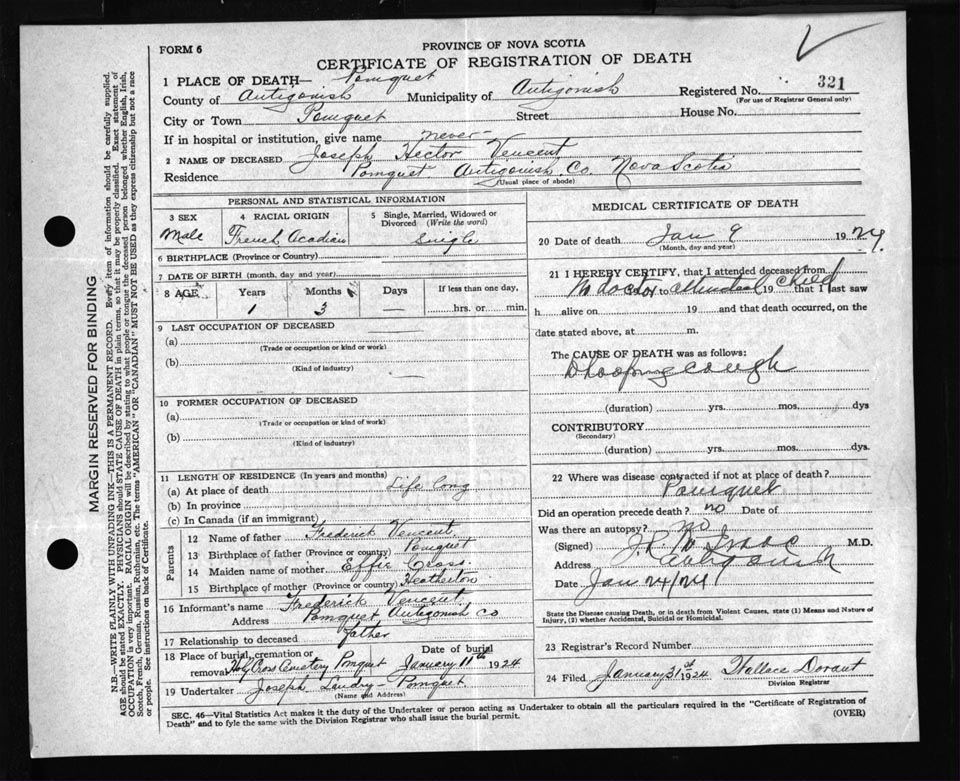 FORM 6
PROVINCE OF NOVA SCOTIA
CERTIFICATE OF REGISTRATION OF DEATH
1 PLACE OF DEATH— Pomquet
County of Antigonish Municipality of Antigonish Registered No. 321
(For use of Registrar General only)
City or Town Pomquet Street House No.
If in hospital or institution, give name never-
2 NAME OF DECEASED Joseph Hector Vencent
Residence Pomquet Antigonish Co. Nova Scotia
(Usual place of abode)
MARGIN RESERVED FOR BINDING
N.B.—WRITE PLAINLY WITH UNFADING INK—THIS IS A PERMANENT RECORD. Every item of information should be carefully supplied.
AGE should be stated EXACTLY. PHYSICIANS should STATE CAUSE OF DEATH in plain terms, so that it may be properly classified. Exact statement of
OCCUPATION is very important. RACIAL ORIGIN will be described by stating to what people or tongue the deceased person belonged whether English, Irish,
Scotch, French, German, Russian, Ruthenian, etc. The terms "AMERICAN" OR "CANADIAN" MUST NOT BE USED as they express citizenship but not a race
or people. See instructions on back of Certificate.
PERSONAL AND STATISTICAL INFORMATION
3 SEX 4 RACIAL ORIGIN 5 Single, Married, Widowed or
Divorced (Write the word)
Male French Acadian Single
6 BIRTHPLACE (Province or Country)
7 DATE OF BIRTH (month, day and year)
8 AGE Years Months Days If less than one day,
1 3 — hrs. or min.
9 LAST OCCUPATION OF DECEASED
(a)
(Trade or occupation or kind or work)
(b)
(Kind of industry)
10 FORMER OCCUPATION OF DECEASED
(a)
(Trade or occupation or kind of work)
(b)
(Kind of industry)
11 LENGTH OF RESIDENCE (In years and months)
(a) At place of death Life long
(b) In province
(c) In Canada (if an immigrant)
Parents
12 Name of father Frederick Vencent
13 Birthplace of father (Province or country) Pomquet
14 Maiden name of mother Effie Cross
15 Birthplace of mother (Province or country) Heatherton
16 Informant's name Frederick Vencent
Address Pomquet Antigonish Co
17 Relationship to deceased father
18 Place of burial, cremation or Date of burial
removal Holy Cross Cemetery Pomquet January 11th 1924
19 Undertaker Joseph Landry Pomquet
(Name and Address)
MEDICAL CERTIFICATE OF DEATH
20 Date of death Jan 9 1924
(Month, day and year)
21 I HEREBY CERTIFY, that I attended deceased from
No doctor to attended 19 child that I last saw
h alive on 19 and that death occurred, on the
date stated above, at m.
The CAUSE OF DEATH was as follows:
Whooping cough
(duration) yrs. mos. dys
CONTRIBUTORY
(Secondary)
(duration) yrs. mos. dys.
22 Where was disease contracted if not at place of death?
Pomquet
Did an operation precede death? no Date of
Was there an autopsy? no
(Signed) M.D.
Address Antigonish
Date Jan 24/24
State the Disease causing Death, or in death from Violent Causes, state (1) Means and Nature of
Injury, (2) whether Accidental, Suicidal or Homicidal.
23 Registrar's Record Number
24 Filed January 31st 1924 Wallace
Division Registrar
SEC. 46—Vital Statistics Act makes it the duty of the Undertaker or person acting as Undertaker to obtain all the particulars required in the "Certificate of Registration of
Death" and to fyle the same with the Division Registrar who shall issue the burial permit. (OVER)